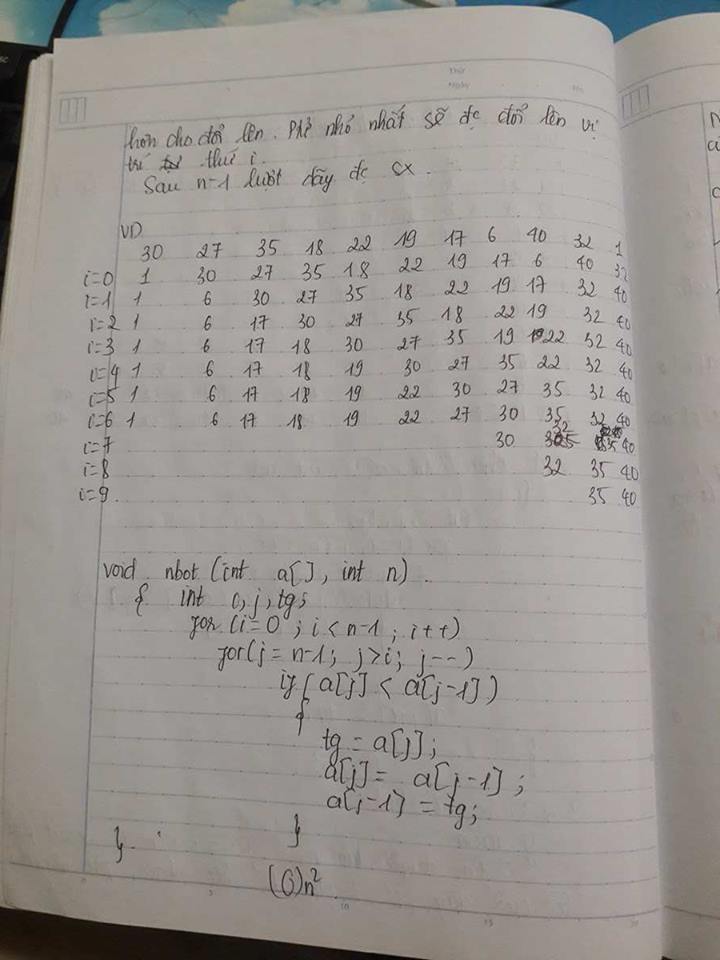 Thứ
Ngày
hơn cho đổi lên. Ptử nhỏ nhất sẽ đc đổi lên vị
trí thứ i.
Sau n-1 lượt dãy đc sx.
VD
30 27 35 18 22 19 17 6 40 32 1
i=0 1 30 27 35 18 22 19 17 6 40 32
i=1 1 6 30 27 35 18 22 19 17 32 40
i=2 1 6 17 30 27 35 18 22 19 32 40
i=3 1 6 17 18 30 27 35 19 22 32 40
i=4 1 6 17 18 19 30 27 35 22 32 40
i=5 1 6 17 18 19 22 30 27 35 32 40
i=6 1 6 17 18 19 22 27 30 35 32 40
i=7 30 32 35 40
i=8 32 35 40
i=9 35 40
void nbot (int a[], int n)
{ int i, j, tg;
for (i=0 ; i < n-1 ; i++)
for (j = n-1; j>i; j--)
if (a[j] < a[j-1])
{
tg = a[j];
a[j] = a[j-1] ;
a[j-1] = tg;
}
}
(O)n²